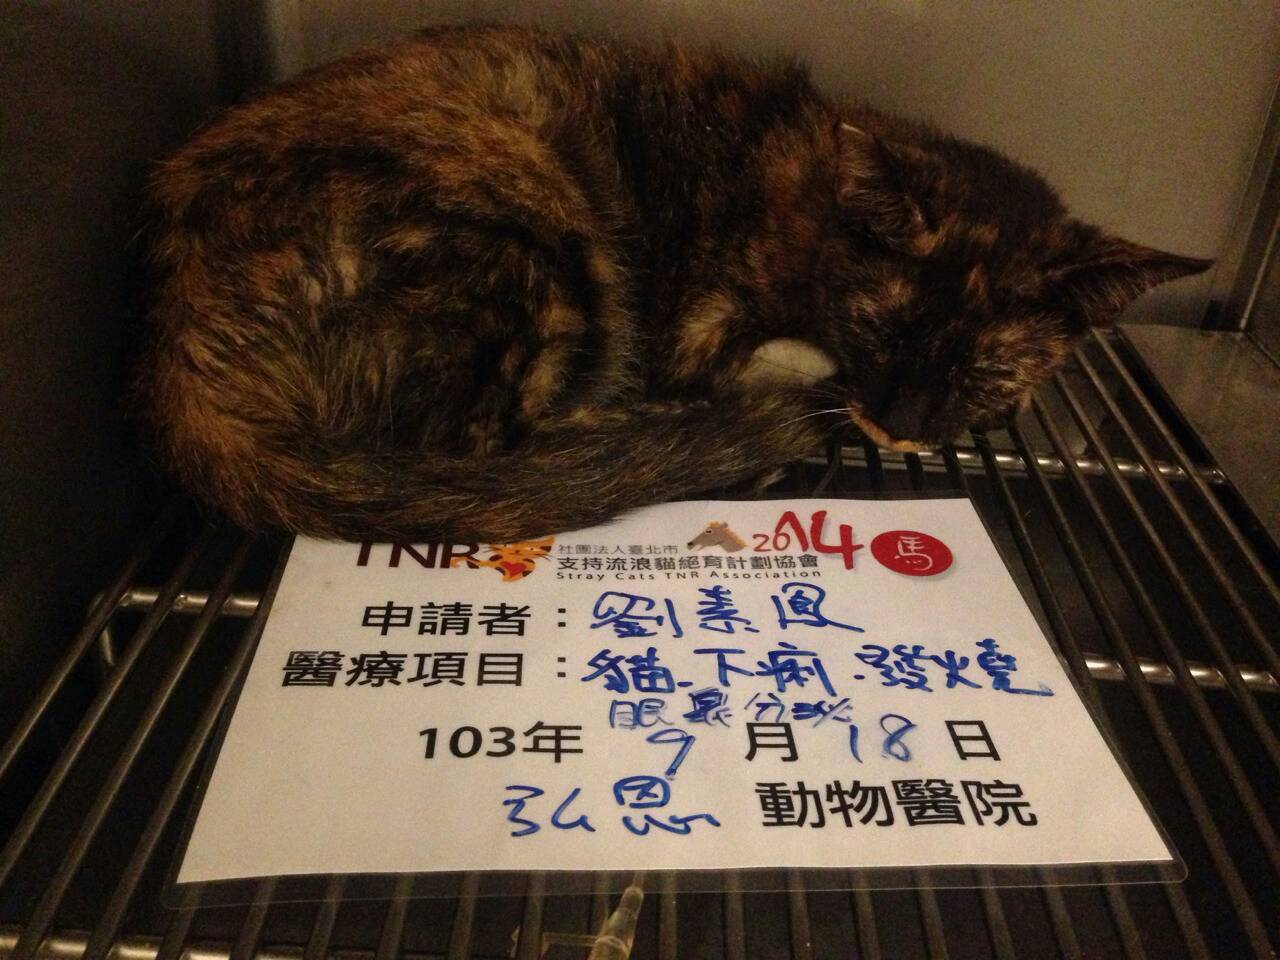 TNR 社團法人臺北市 2014 馬
支持流浪貓絕育計劃協會
Stray Cats TNR Association
申請者：劉素鳳
醫療項目：貓.下痢.發燒
眼鼻分泌
103年 9 月 18 日
弘恩 動物醫院